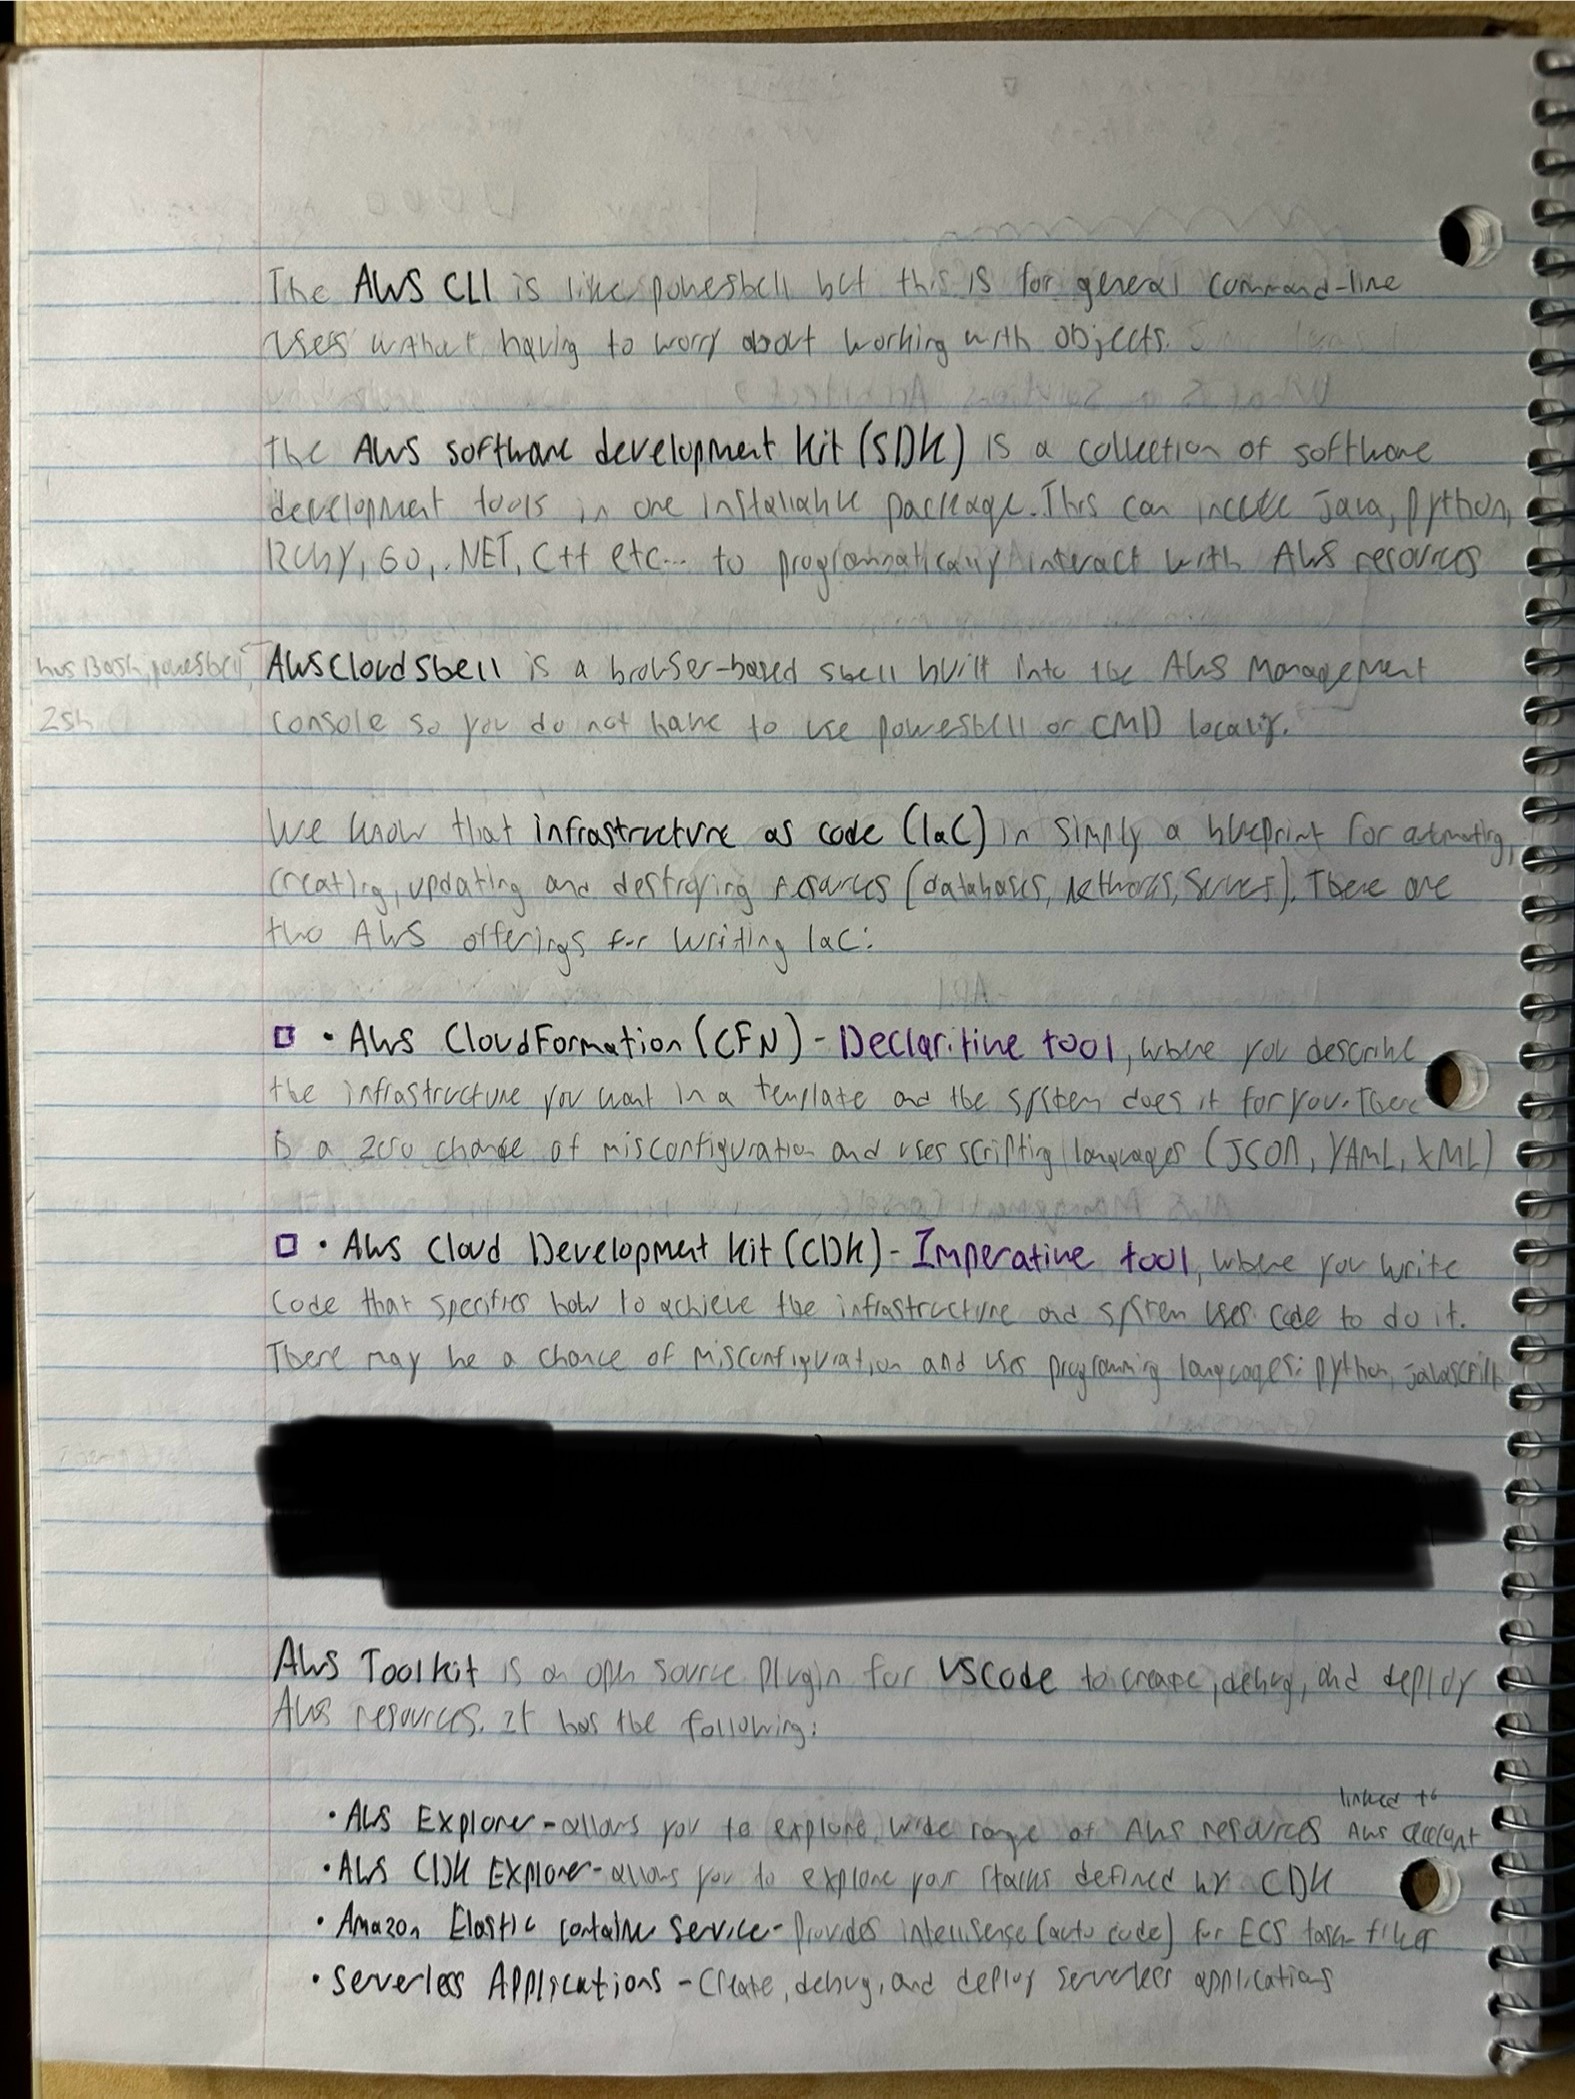 The AWS CLI is like powershell but this is for general command-line
uses without having to worry about working with objects.
The AWS software development kit (SDK) is a collection of software
development tools in one installable package. This can include Java, python,
Ruby, Go, .NET, C++ etc... to programmatically interact with AWS resources
has Bash, powershell,
Zsh
AWS Cloudshell is a browser-based shell built into the AWS Management
Console so you do not have to use powershell or CMD locally.
We know that infrastructure as code (IaC) in simply a blueprint for automating,
creating, updating and destroying resources (databases, networks, servers). There are
two AWS offerings for writing IaC:
• AWS CloudFormation (CFN) - Declaritive tool, where you describe
the infrastructure you want in a template and the system does it for you. There
is a zero chance of misconfiguration and uses scripting languages (JSON, YAML, XML)
• AWS Cloud Development Kit (CDK) - Imperative tool, where you write
code that specifies how to achieve the infrastructure and system uses code to do it.
There may be a chance of misconfiguration and uses programming languages: python, javascript
AWS Toolkit is an open source plugin for VScode to create, debug, and deploy
AWS resources. It has the following:
• AWS Explorer - allows you to explore wide range of AWS resources linked to AWS account
• AWS CDK Explorer - allows you to explore your stacks defined by CDK
• Amazon Elastic container service - Provides intellisense (auto code) for ECS task
• Serverless Applications - Create, debug, and deploy serverless applications